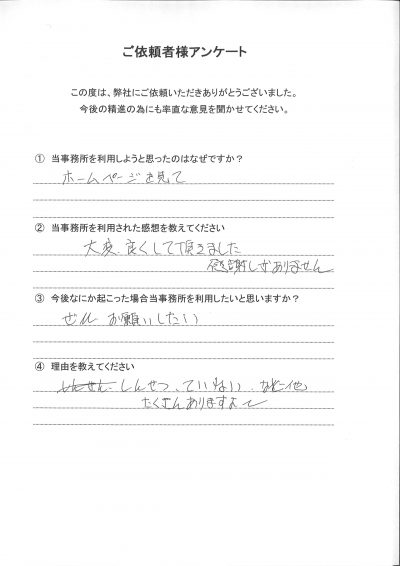 ご依頼者様アンケート
この度は、弊社にご依頼いただきありがとうございました。
今後の精進の為にも率直な意見を聞かせてください。
① 当事務所を利用しようと思ったのはなぜですか?
ホームページを見て
② 当事務所を利用された感想を教えてください
大変、良くして頂きました
感謝しかありません
③ 今後なにか起こった場合当事務所を利用したいと思いますか?
ぜひ お願いしたい
④ 理由を教えてください
しんせつ、ていねい、
たくさんありますよ~